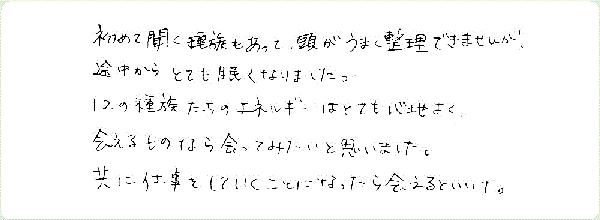 初めて聞く種族もあって、頭がうまく整理できませんが、
途中からとても眠くなりました。
12の種族たちのエネルギーはとても心地よく、
会えるものなら会ってみたいと思いました。
共に仕事をしていくことになったら会えるといいな。